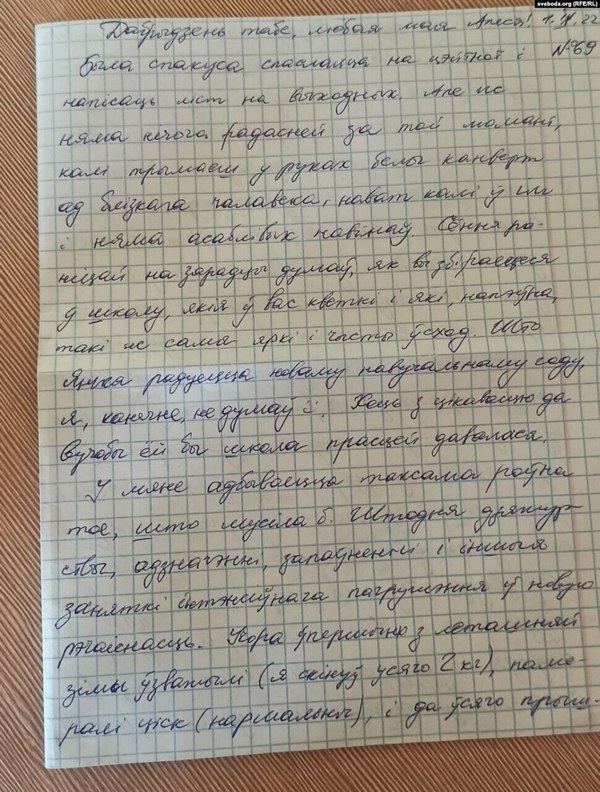 svaboda.org (RFE/RL)
Дабрыдзень табе, любая мая Алеся! 1. IX. 22
Была спакуса спаслацца на цэйтнот і №69
напісаць ліст на выходных. Але ж
няма нічога радасней за той момант,
калі трымаеш у руках белы канверт
ад блізкага чалавека, нават калі ў ім
і няма асаблівых навінаў. Сёння ра-
ніцай на зарадцы думаў, як вы збіраецеся
ў школу, якія ў вас кветкі і які, напэўна,
такі ж сама яркі і чысты ўсход. Што
радуецца новаму навучальнаму году,
я, канечне, не думаў. Хоць з цікавасцю да
вучобы ёй бы школа прасцей давалася.
У мяне адбываецца таксама роўна
тое, што мусіла б. Штодня дзяжур-
ствы, адзначэнні, запаўненні і іншыя
заняткі інтэнсіўнага пагружэння ў новую
рэчаіснасць. Учора ўпершыню з леташняй
зімы ўзважылі (я скінуў усяго 2 кг), паме-
ралі ціск (нармальны), і да ўсяго прыш-